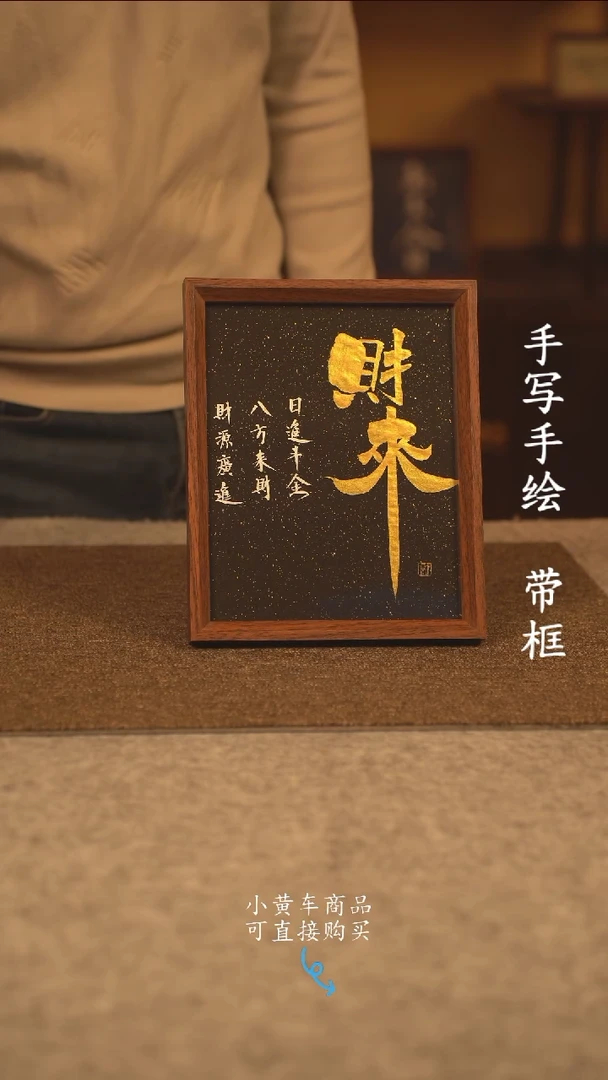 財來
日進斗金
八方来財
財源廣進
手写手绘 带框
小黄车商品
可直接购买